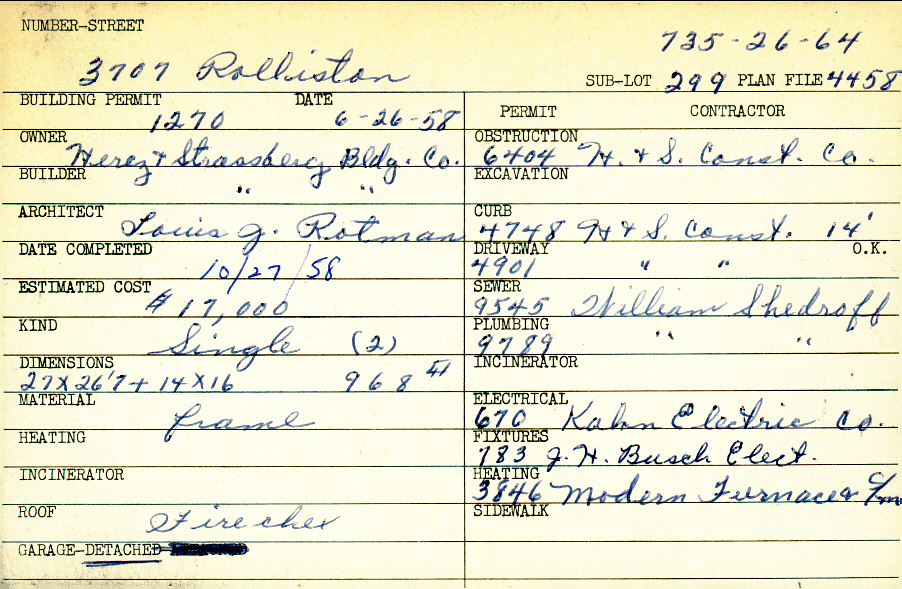 NUMBER-STREET
735-26-64
3707 Rolliston
SUB-LOT 299 PLAN FILE 4458
BUILDING PERMIT DATE
1270 6-26-58
PERMIT CONTRACTOR
OWNER Herez & Strassberg Bldg. Co.
OBSTRUCTION 6404 H. & S. Const. Co.
BUILDER " "
EXCAVATION
ARCHITECT Louis J. Rotman
CURB 4748 H & S. Const. 14'
DATE COMPLETED 10/27/58
DRIVEWAY O.K.
4901 " "
ESTIMATED COST $17,000
SEWER 9545 William Shedroff
KIND Single (2)
PLUMBING 9789 " "
DIMENSIONS
27 X 26'7 + 14 X 16 968
INCINERATOR
MATERIAL frame
ELECTRICAL 670 Kahn Electric Co.
HEATING
FIXTURES 783 J. H. Busch Elect.
INCINERATOR
HEATING 3846 Modern Furnace &
ROOF Firechex
SIDEWALK
GARAGE-DETACHED